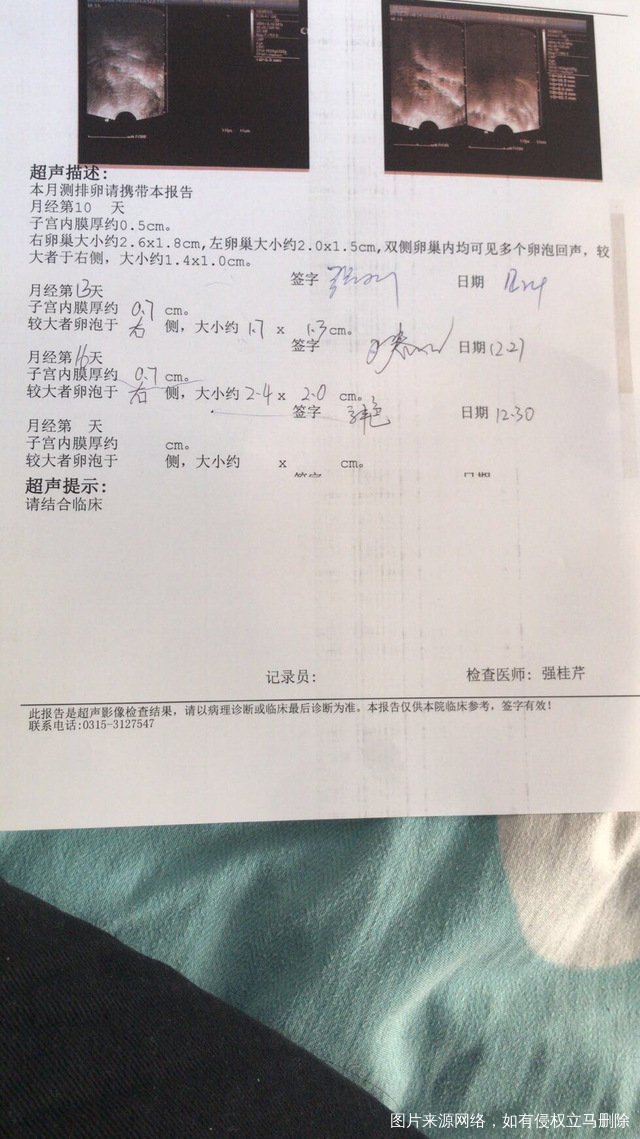 超声描述:
本月测排卵请携带本报告
月经第10 天
子宫内膜厚约0.5cm。
右卵巢大小约2.6x1.8cm,左卵巢大小约2.0x1.5cm,双侧卵巢内均可见多个卵泡回声, 较
大者于右侧, 大小约1.4x1.0cm。
签字 日期 12.24
月经第13天
子宫内膜厚约 0.7 cm。
较大者卵泡于 右 侧, 大小约 1.7 x 1.3cm。
签字 日期 12.27
月经第16天
子宫内膜厚约 0.7 cm。
较大者卵泡于 右 侧, 大小约 2.4 x 2.0 cm。
签字 日期 12.30
月经第 天
子宫内膜厚约 cm。
较大者卵泡于 侧, 大小约 x cm。
超声提示:
请结合临床
记录员: 检查医师: 强桂芹
此报告是超声影像检查结果, 请以病理诊断或临床最后诊断为准。本报告仅供本院临床参考, 签字有效!
联系电话:0315-3127547
图片来源网络，如有侵权立马删除